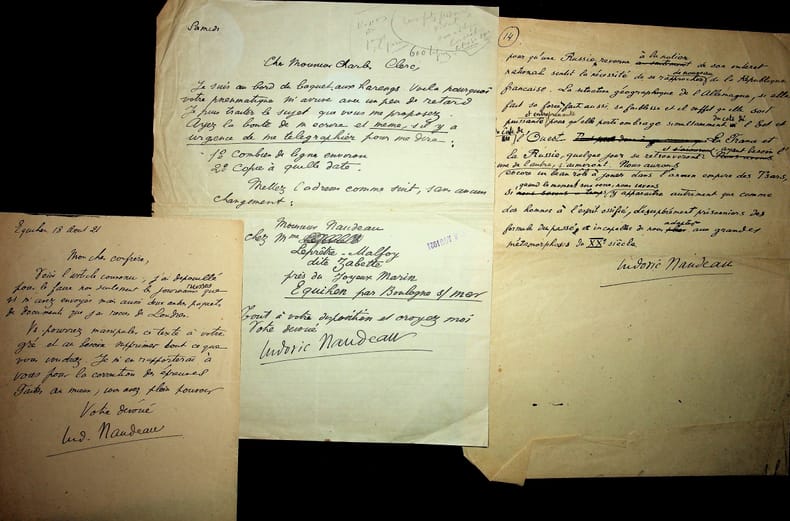 Equihen 18 Aout 21
Mon cher confrère,
Voici l'article convenu; j'ai dépouillé
pour le faire non seulement le journaux russes que
vous m'aviez envoyés mais aussi deux autres paquets
de documents que j'ai recus de Londres.
Vs pourrez manipuler ce texte à votre
gré et au besoin supprimer tout ce que
vous voudrez. Je m'en rapporterai à
vous pour la correction des épreuves
Faites au mieux, vous avez plein pouvoir
Votre dévoué
Lud. Naudeau
Samedi
600 lignes
Cher Monsieur Charles Clerc
Je suis au bord de baquet aux harengs Voila pourquoi
votre pneumatique m'arrive avec un peu de retard
Je puis traiter le sujet que vous me proposez.
Ayez la bonté de m'écrire et même, s'il y a
urgence de me télégraphier pour me dire:
1º Combien de ligne environ
2º Copie à quelle date.
Mettez l'adresse comme suit, sans aucun
changement:
Monsieur Naudeau
chez Mme
Leprêtre-Malfoy
dite Zabette
près du Joyeux Marin
Equihen par Boulogne s/mer
Tout à votre disposition et croyez moi
Votre dévoué
Ludovic Naudeau
14
pour qu'une Russie, revenue à la notion de son intérêt
national sentit la nécessité de se rapprocher de nouveau de la République
française. La situation géographique de l'Allemagne, si elle
fait sa force fait aussi sa faiblesse et il suffit qu'elle soit
puissante pour qu'elle porte ombrage simultanément à l'Est et
l'Ouest. La France et
la Russie, quelque jour se retrouveront, ayant besoin l'
une de l'autre, s'aimeront. Nous aurons
encore un beau rôle à jouer dans l'ancien empire des Tzars,
y apparaître autrement que comme
des hommes à l'esprit ossifié, désespérément prisonniers des
formules du passé, et incapables de nous adapter aux grandes
métamorphoses du XXe siècle.
Ludovic Naudeau